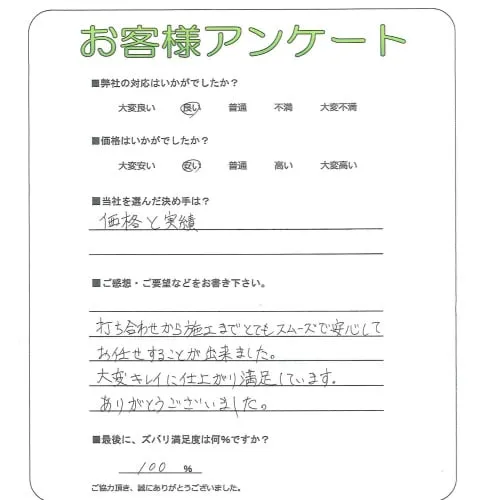 お客様アンケート
■弊社の対応はいかがでしたか？
大変良い 良い 普通 不満 大変不満
■価格はいかがでしたか？
大変安い 安い 普通 高い 大変高い
■当社を選んだ決め手は？
価格と実績
■ご感想・ご要望などをお書き下さい。
打ち合わせから施工までとてもスムーズで安心して
お任せすることが出来ました。
大変キレイに仕上がり満足しています。
ありがとうございました。
■最後に、ズバリ満足度は何％ですか？
100 ％
ご協力頂き、誠にありがとうございました。